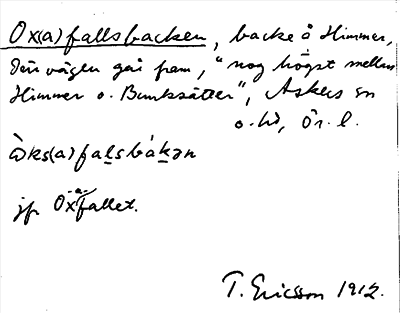 Ox(a)fallsbacken, backe å Himmer,
där vägen går fram, "nog högst mellan
Himmer o. Bunksätter", Askers sn
o. hd, Ör. l.
ɷ̀ks(a)falsbákən
jfr Oxafallet.
T. Ericsson 1912.